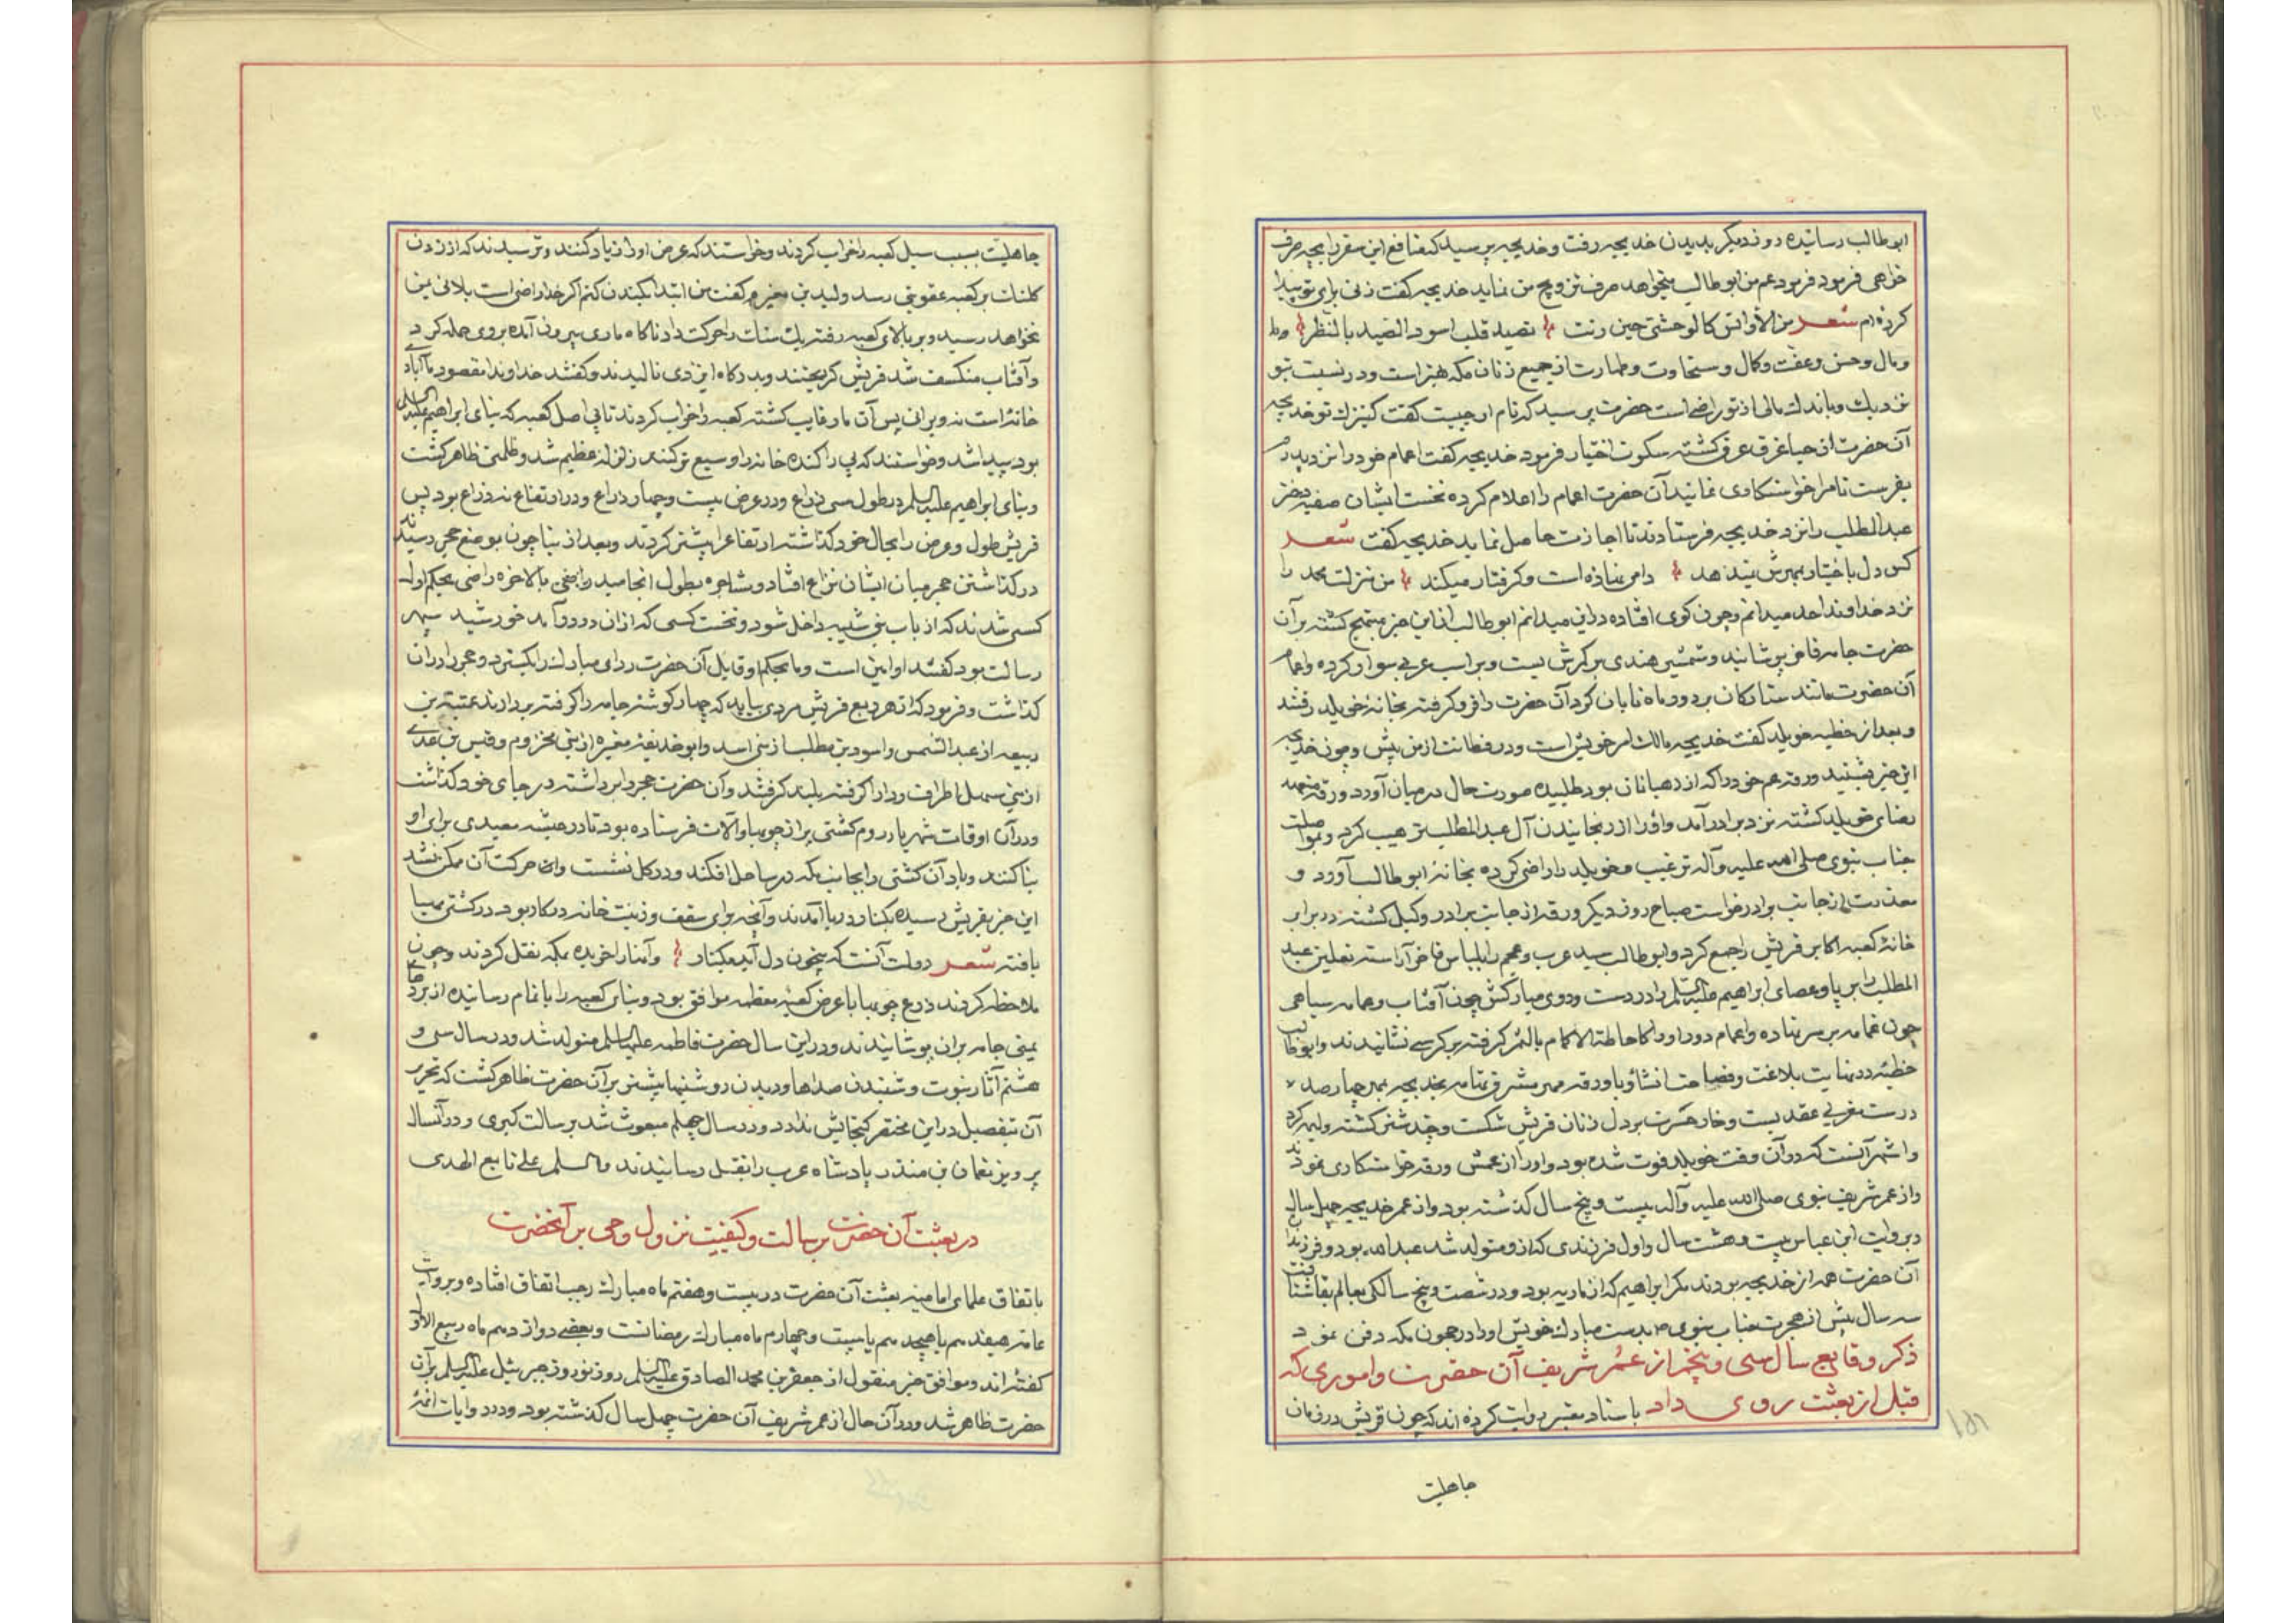 ابوطالب رسانیده روز دیگر بدیدن خدیجه رفت و خدیجه پرسید که منافع این سفر را بچه صرف
خواهی فرمود فرمود عم من ابوطالب میخواهد صرف تزویج من نماید خدیجه گفت زنی برای تو پیدا
کرده‌ام شعر من الأوانس کالوحشی حین رنت تصید قلب اسود الصید بالنظر
و مال و حسن و عفت و کمال و سخاوت و طهارت از جمیع زنان مکه بهتر است و در نسبت بتو
نزدیک و باندک مالی از تو راضی است حضرت پرسید که نام او چیست گفت کنیزک تو خدیجه
آن حضرت از حیا غرق عرق گشته سکوت اختیار فرمود خدیجه گفت اعمام خود را نزد پدرم
بفرست تا مرا خواستکاری نمایند آن حضرت اعمام را اعلام کرده نخست ایشان صفیه دختر
عبدالمطلب را نزد خدیجه فرستادند تا اجازت حاصل نماید خدیجه گفت شعر
کس دل باختیار بمهرش نمیدهد دامی نهاده است و گرفتار میکند من منزلت محمد را
نزد خداوند احد میدانم و چون گوی افتاده در این میدانم ابوطالب از این خبر مبتهج گشته بر آن
حضرت جامه فاخر پوشانید و شمشیر هندی بر کمرش بست و بر اسب عربی سوار کرده و اعمام
آن حضرت مانند ستارگان بر دور ماه تابان گرد آن حضرت را فرو گرفته بخانهٔ خویلد رفتند
و بعد از خطبه خویلد گفت خدیجه مالک امر خویش است و در فطانت از من پیش و چون خدیجه
این خبر بشنید ورقه عم خود را که از رهبانان بود طلبیده صورت حال در میان آورد ورقه متعهد
رضای خویلد گشته نزد برادر آمد و او را از رنجانیدن آل عبدالمطلب ترهیب کرد و بمواصلت
جناب نبوی صلی الله علیه و آله ترغیب و خویلد را راضی کرده بخانه ابوطالب آورد و
معذرت از جانب برادر خواست صباح روز دیگر ورقه از جانب برادر وکیل گشته در برابر
خانهٔ کعبه اکابر قریش را جمع کرد و ابوطالب سید عرب و عجم را بلباس فاخر آراسته نعلین عبد
المطلب را بر پا و عصای ابراهیم علیه السلم را در دست و روی مبارکش چون آفتاب و عمامه سیاهی
چون غمامه بر سر نهاده و اعمام دور او را کاحاطة الاکمام بالثمر گرفته بر کرسی نشانیدند و ابوطالب
خطبه در نهایت بلاغت و فصاحت انشاء و با ورقه بنامه بخدیجه بمهر چهارصد
درست مغربی عقد بست و خار حسرت بر دل زنان قریش شکست و چند شتر کشته ولیمه کرد
و اشهر آنست که در آن وقت خویلد فوت شده بود و او را از عمش ورقه خواستکاری نمودند
و از عمر شریف نبوی صلی الله علیه و آله بیست و پنج سال گذشته بود و از عمر خدیجه چهل سال
و بروایت ابن عباس بیست و هشت سال و اول فرزندی که از او متولد شد عبدالله بود و فرزندان
آن حضرت همه از خدیجه بودند مگر ابراهیم که از ماریه بود و در شصت و پنج سالگی بعالم بقا شتافت
سه سال پیش از هجرت جناب نبوی ص بدست مبارک خویش او را در حجون مکه دفن نمود
ذکر وقایع سال سی و پنجم از عمر شریف آن حضرت و اموری که
قبل از بعثت روی داد باسناد معتبر روایت کرده‌اند که چون قریش در زمان
جاهلیت
جاهلیت بسبب سیل کعبه را خراب کردند و خواستند که عرض او را زیاد کنند و ترسیدند که از زدن
کلنگ بر کعبه عقوبتی رسد ولید بن مغیره گفت من ابتدا بکندن کنم اگر خدا راضی است بلائی بمن
نخواهد رسید و بر بالای کعبه رفته یک سنگ را حرکت داد ناگاه ماری بیرون آمده بر وی حمله کرد
و آفتاب منکسف شد قریش گریختند و بدرگاه ایزدی نالیدند و گفتند خداوندا مقصود ما آبادی
خانه است نه ویرانی پس آن مار غایب گشته کعبه را خراب کردند تا پی اصل کعبه که بنای ابراهیم علیه السلم
بود پیدا شد و خواستند که پی را کنده خانه را وسیع تر کنند زلزله عظیم شد و ظلمتی ظاهر گشت
و بنای ابراهیم علیه السلم در طول سی ذراع و در عرض بیست و چهار ذراع و در ارتفاع نه ذراع بود پس
قریش طول و عرض را بحال خود گذاشته ارتفاع را بیشتر کردند و بعد از بنا چون بوضع حجر رسیدند
در گذاشتن حجر میان ایشان نزاع افتاد و مشاجره بطول انجامید و بالاخره راضی بحکم اول
کسی شدند که از باب بنی شیبه داخل شود و نخست کسی که از آن در درآمد خورشید سپهر
رسالت بود گفتند او امین است و ما بحکم او قایل آن حضرت ردای مبارک را بگسترد و حجر را در آن
گذاشت و فرمود که از هر ربع قریش مردی بیاید که چهار گوشه جامه را گرفته بردارند عتبة بن
ربیعه از عبدالشمس و اسود بن مطلب از بنی اسد و ابو حذیفه مغیره از بنی مخزوم و قیس بن عدی
از بنی سهل اطراف ردا را گرفته بلند گرفتند و آن حضرت حجر را برداشته در جای خود گذاشت
و در آن اوقات شهریار روم کشتی پر از چوبها و آلات فرستاده بود تا در حبشه معبدی برای او
بنا کنند و باد آن کشتی را بجانب مکه در ساحل افکند و در گل نشست و حرکت آن ممکن نشد
این خبر بقریش رسیده بکنار دریا آمدند و آنچه برای سقف و زینت خانه در کار بود در کشتی مهیا
یافته شعر دولت آنست که بیخون دل آید بکنار و آنها را خریده بمکه نقل کردند و چون
ملاحظه کردند ذرع چوبها با عرض کعبه معظمه موافق بود و بنای کعبه را باتمام رسانیده از بردهای
یمنی جامه بر آن پوشانیدند و در این سال حضرت فاطمه علیها السلم متولد شد و در سال سی و
هشتم آثار نبوت و شنیدن صداها و دیدن روشنیها بیشتر بر آن حضرت ظاهر گشت که تحریر
آن بتفصیل در این مختصر گنجایش ندارد و در سال چهلم مبعوث شد برسالت کبری و در آنسال
پرویز نعمان بن منذر پادشاه عرب را بقتل رسانیدند والسلم علی تابع الهدی
در بعثت آن حضرت برسالت و کیفیت نزول وحی بر آنحضرت
باتفاق علمای امامیه بعثت آن حضرت در بیست و هفتم ماه مبارک رجب اتفاق افتاده و بروایت
عامه هیفدهم یا هیجدهم یا بیست و چهارم ماه مبارک رمضانست و بعضی دوازدهم ماه ربیع الاول
گفته‌اند و موافق خبر منقول از جعفر بن محمد الصادق علیه السلم روز نوروز جبرئیل علیه السلم بر آن
حضرت ظاهر شد و در آن حال از عمر شریف آن حضرت چهل سال گذشته بود و در روایات ائمه